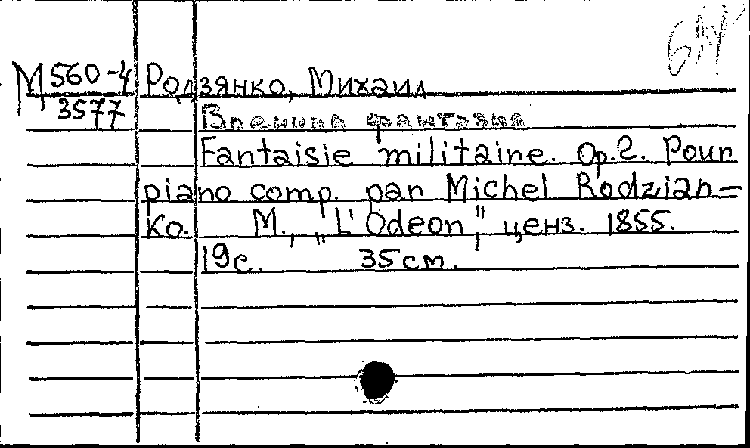 М 560-4 Родзянко, Михаил
3577
Военная фантазия
Fantaisie militaire. Op.2. Pour
piano comp. par Michel Rodzian=
ko. М., „L'Odeon", ценз. 1855.
19с. 35см.